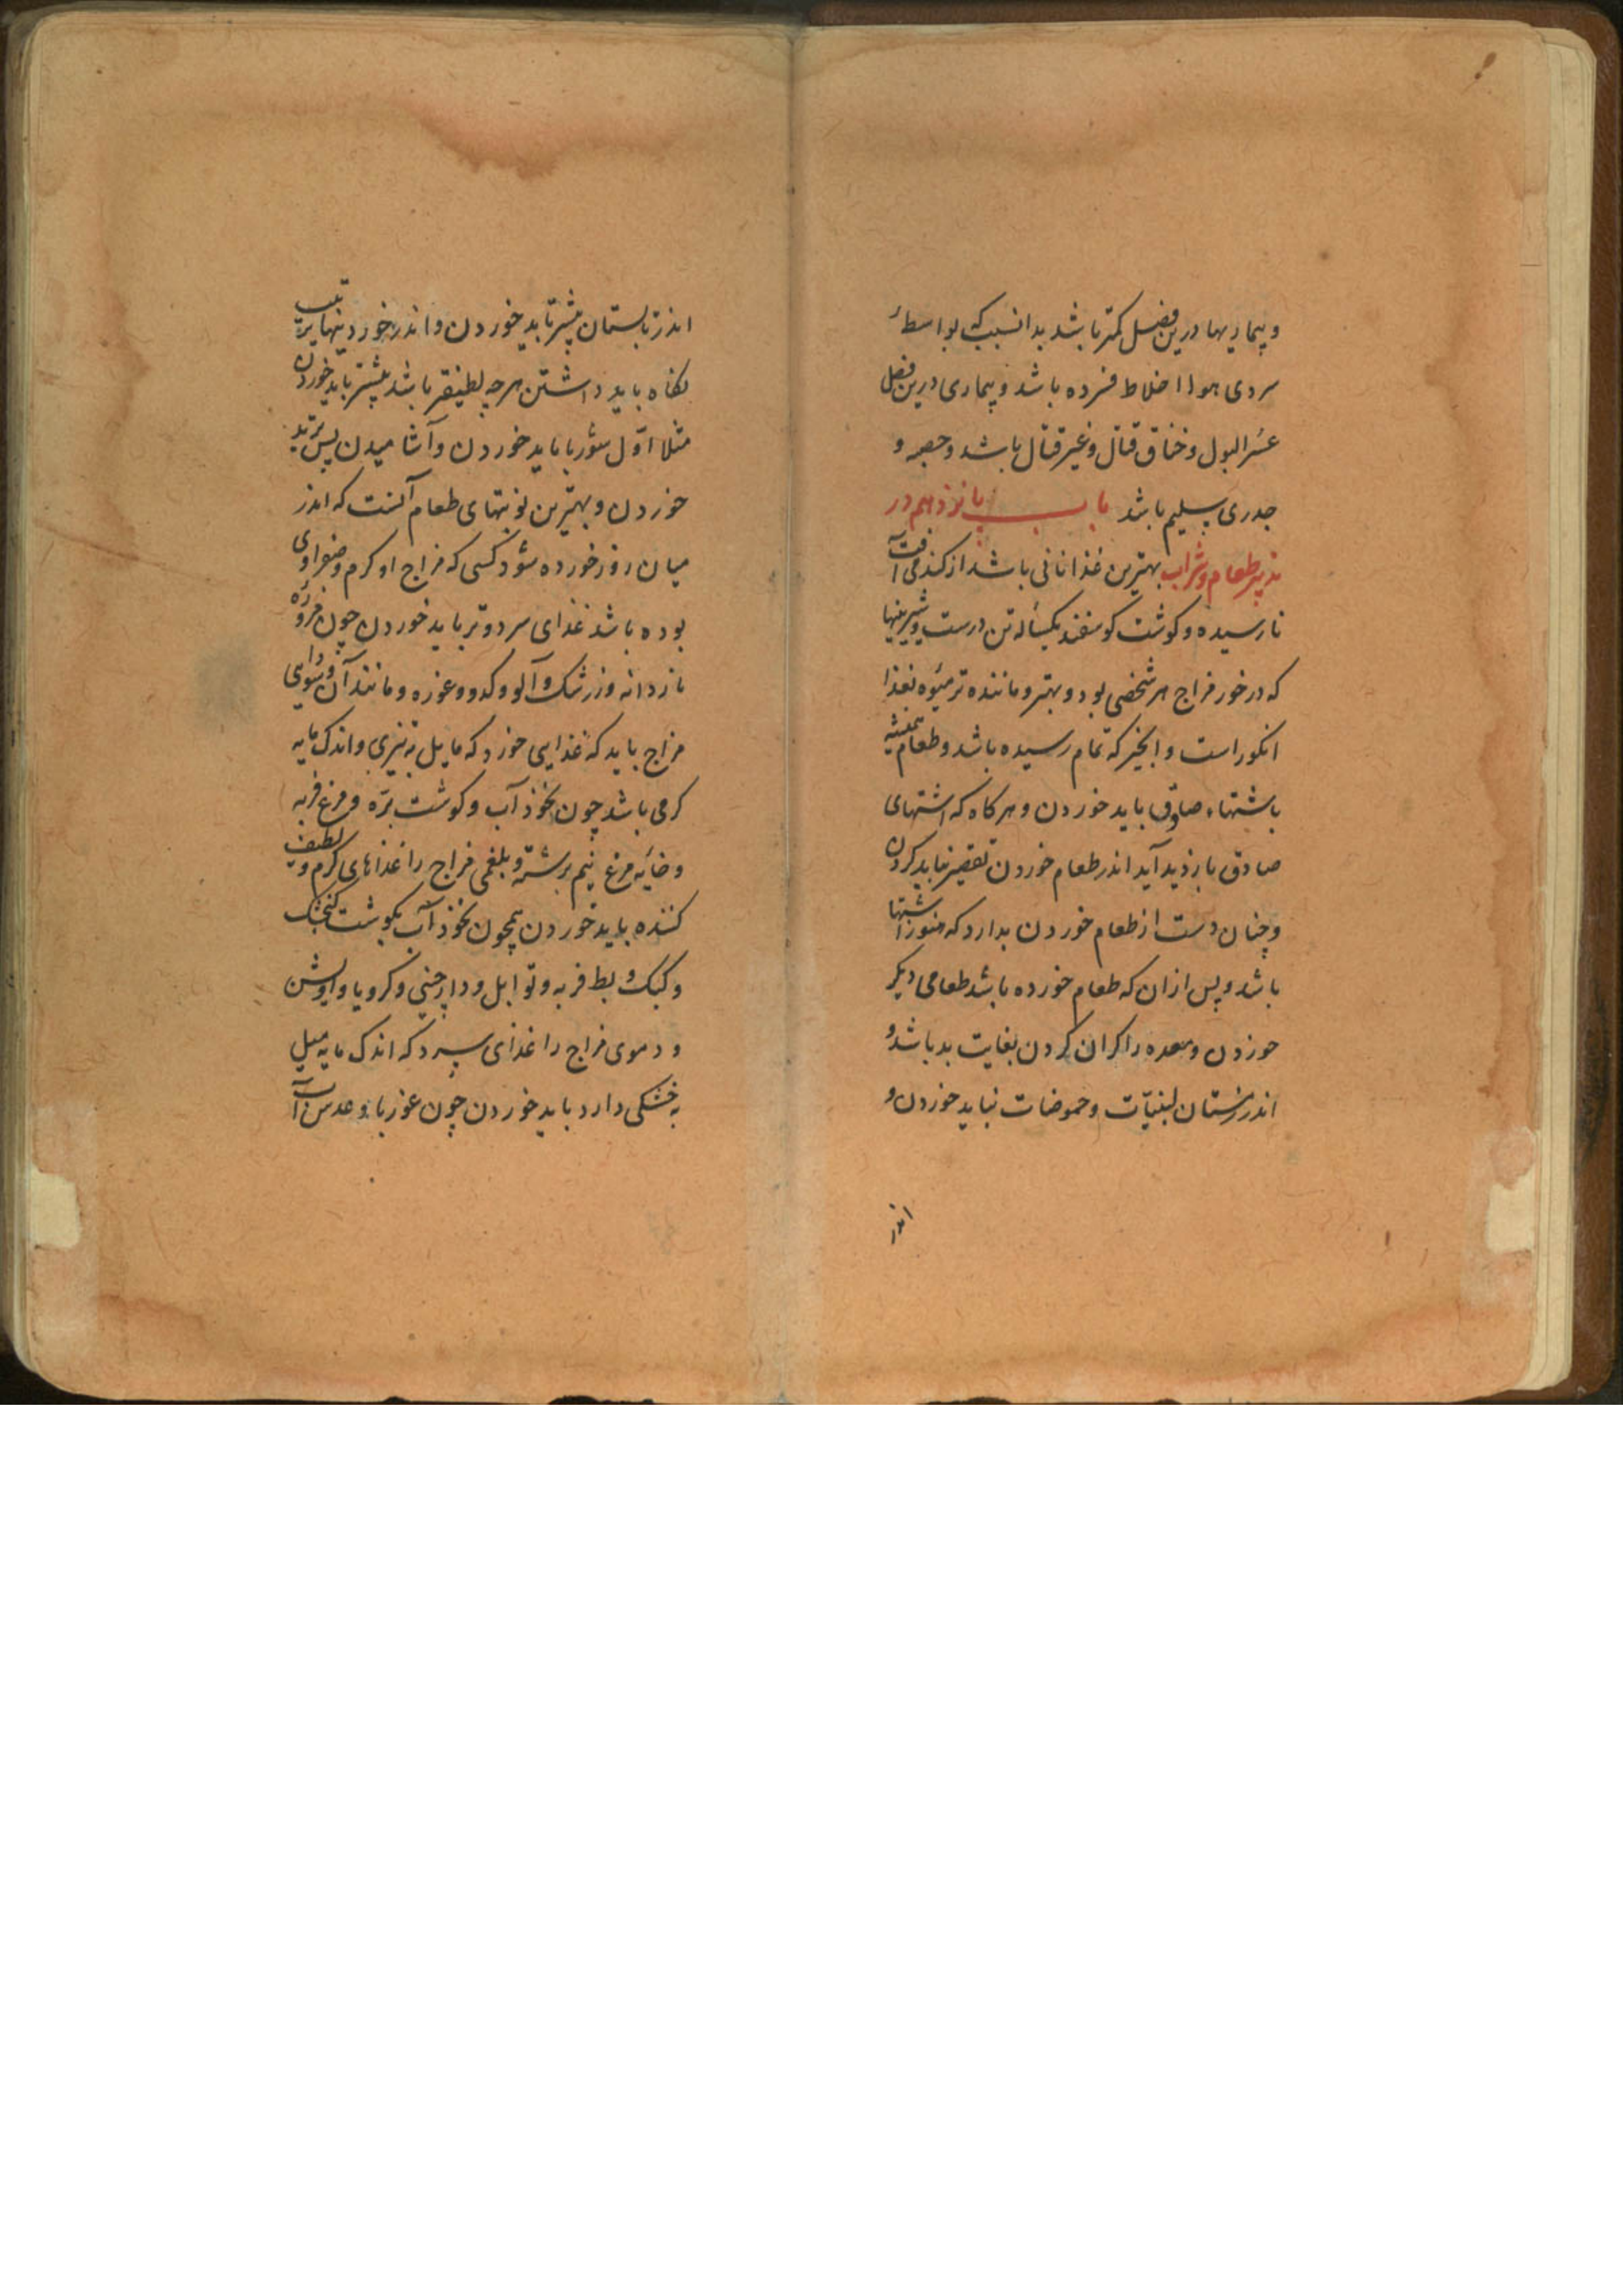 و بیماریها درین فصل کمتر باشد بدانسبب که بواسطهٔ
سردی هوا اخلاط فسرده باشد و بیماری درین فصل
عسر البول و خناق قتال و غیر قتال باشد و حصبه و
جدری سلیم باشد باب پانزدهم در
تدبیر طعام و شراب بهترین غذا نانی باشد از کندمی آفت
نارسیده و کوشت کوسفند یکساله تن درست و شیرینیها
که در خور مزاج هر شخصی بود و بهتر و ماننده تر میوه بغذا
انکور است و انجیر که تمام رسیده باشد و طعام همیشه
باشتهاء صادق باید خوردن و هرکاه که اشتهای
صادق بازدید آید اندر طعام خوردن تقصیر نباید کردن
و چنان دست از طعام خوردن بدارد که هنوز اشتها
باشد و پس ازان که طعام خورده باشد طعامی دیکر
خوردن و معده را کران کردن بغایت بد باشد و
اندر زمستان لبنیّات و حموضات نباید خوردن و
اندر
اندر تابستان بیشتر باید خوردن و اندر خوردنیها ترتیب
نکاه باید داشتن هرچه لطیفتر باشد پیشتر باید خوردن
مثلا اوّل شوربا باید خوردن و آشامیدن پس ترید
خوردن و بهترین نوبتهای طعام آنست که اندر
میان روز خورده شود کسی که مزاج او کرم و صفراوی
بوده باشد غذای سرد و تر باید خوردن چون مزوره
ناردانه و زرشک و آلو و کدو و غوره و مانند آن و سودایی
مزاج باید که غذایی خورد که مایل به تری و اندک مایه
کرمی باشد چون نخود آب و کوشت برّه و مرغ فربه
و خایه مرغ نیم برشته و بلغمی مزاج را غذاهای کرم و لطیف
کننده باید خوردن همچون نخود آب بکوشت کنجشک
و کبک و بط فربه و توابل و دارچینی و کرویا و اویشن
و دموی مزاج را غذای سرد که اندک مایه میل
به خشکی دارد باید خوردن چون غوربا و عدس آب